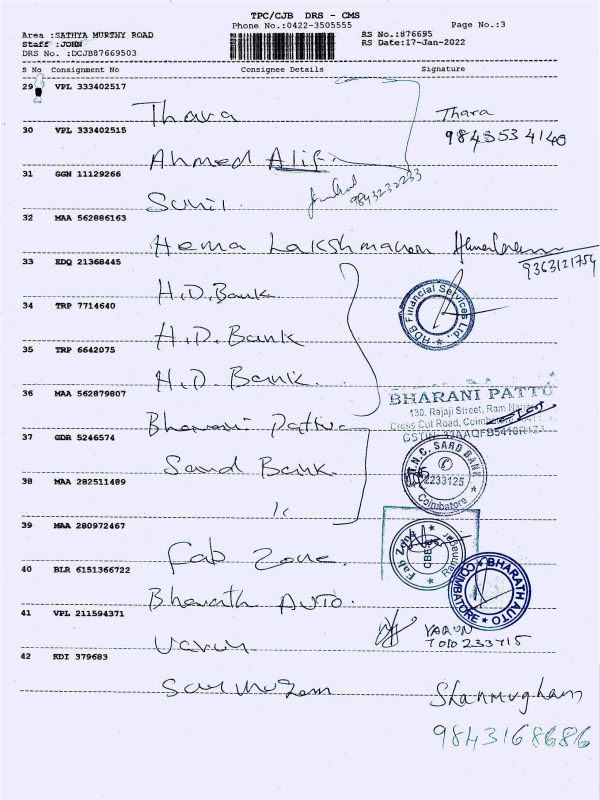 TPC/CJB DRS - CMS
Phone No.:0422-3505555
Page No.:3
Area :SATHYA MURTHY ROAD
RS No.:876695
Staff :JOHN
RS Date:17-Jan-2022
DRS No. :DCJB87669503
S No Consignment No Consignee Details Signature
29 VPL 333402517
Thara
Thara
9843534140
30 VPL 333402515
Ahmed Alif
31 GGN 11129266
Sunil
9843232233
32 MAA 562886163
Hema Lakshmanan
9363121754
33 EDQ 21368445
H.D.Bank
HDB Financial Services Ltd.
34 TRP 7714640
H.D. Bank
35 TRP 6642075
H.D Bank.
36 MAA 562879807
Bharani Pattu
BHARANI PATTU
130, Rajaji Street, Ram Nagar
Cross Cut Road,
37 GDR 5246574
Sard Bank
T.N.C. SARD BANK
2233125
Coimbatore
38 MAA 282511489
39 MAA 280972467
Fab Zone.
Fab Zone
CBE
Ramnagar
40 BLR 6151366722
Bharath Auto.
BHARATH AUTO
COIMBATORE
41 VPL 211594371
Varun
VARUN
42 KDI 379683
Shanmugham
9843168686